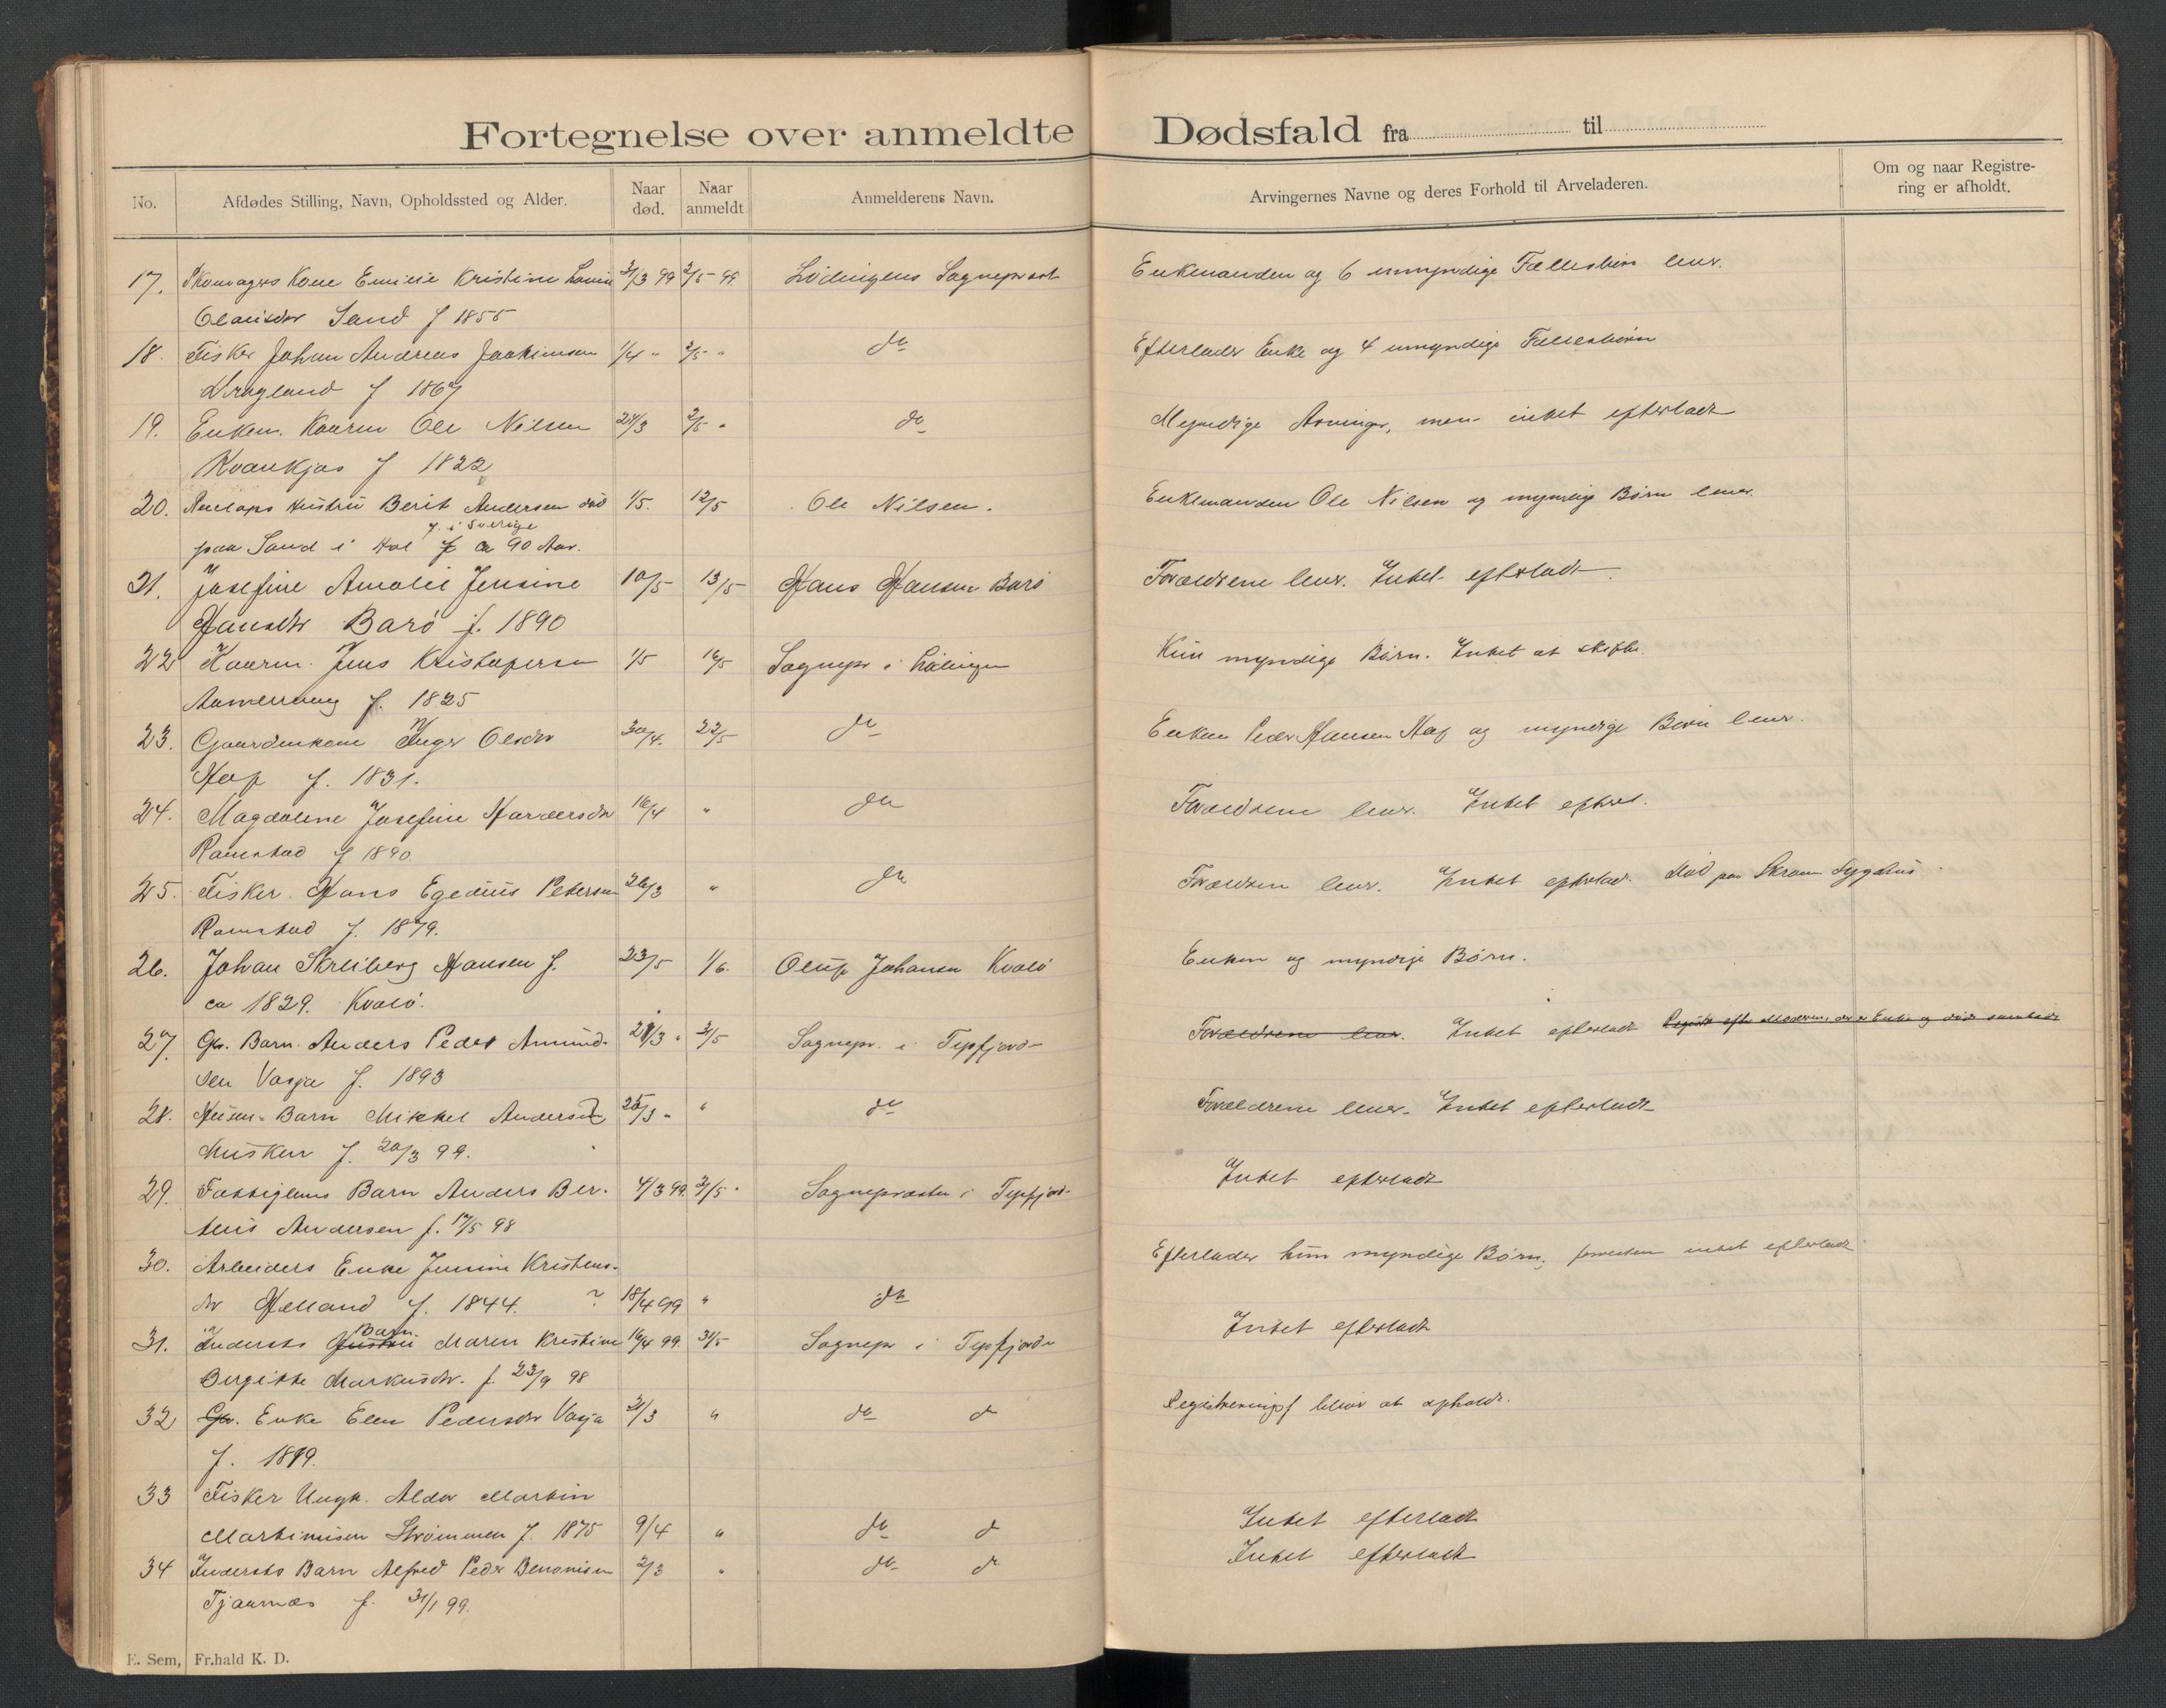 Fortegnelse over anmeldte Dødsfald fra til
No. Afdødes Stilling, Navn, Opholdssted og Alder. Naar død. Naar anmeldt Anmelderens Navn. Arvingernes Navne og deres Forhold til Arveladeren. Om og naar Registrering er afholdt.
17. Skomagers Kone Emilie Kristine 31/3 99 2/5 99. Lødingens Sognepræst Enkemanden og 6 umyndige Fællesbørn lever.
Olausdtr Sand f 1855
18. Fisker Johan Andreas Joakimsen 1/4 " 2/5 " do Efterlader Enke og 4 umyndige Fællesbørn
Kragland f 1867
19. Enkem. Kaarm Ole Nilsen 24/3 2/5 " do Myndige Arvinger, men intet efterladt
Kvankjos f 1822
20. Hustru Berit Andersen død 1/5. 12/5 Ole Nilsen. Enkemanden Ole Nilsen og myndige Børn lever.
f. i Sverige
paa Sand i Hol ca 90 Aar.
21. Josefine Amalie Jensine 10/5 13/5 Hans Hansen Barø Forældrene lever. Intet efterladt.
Hansdtr Barø f. 1890
22 Kaarm. Jens Kristofersen 1/5 16/5 Sognepr i Lødingen Kun myndige Børn. Intet at skifte.
f. 1825
23. Gaardmkone Inger Olsdtr 30/4. 22/5 do Enkem Peder Hansen Hop og myndige Børn lever.
Hop f. 1831.
24. Magdalene Josefine 16/4 " do Forældrene lever. Intet efterl.
Ramstad f 1890.
25. Fisker Hans Egedius Petersen 26/3 " do Forældren lever. Intet efterladt. Død paa Skraaven Sygehus.
Ramstad f. 1879.
26. Johan Skreiberg Hansen f. 23/5 1/6. Oluf Johansen Kvalø Enken og myndige Børn.
ca 1829. Kvalø.
27. Gbr. Barn Anders Peder Amund- 21/3 " 31/5 Sognepr. i Tysfjord Forældrene lever. Intet efterladt
sen Vasja f. 1893
28. Barn Mikkel Andersen 25/3 " " do Forældrene lever. Intet efterladt
Musken f. 20/3 99.
29. Fattiglems Barn Anders Ber- 4/3 99 31/5 " Sognepræsten i Tysfjord Intet efterladt
teus Andersen f. 17/5 98
30. Arbeiders Enke Jensine Kristens- Efterlader kun myndige Børn, forresten intet efterladt
dtr Helland f. 1844. ? 18/4 99 " do
Barn
31. Indersts Hustru Maren Kristine 16/4 99. 31/5 Sognepr i Tysfjord Intet efterladt
Birgitte Markusdtr. f. 23/9 98
32 Gbr. Enke Elen Pedersdtr Vasja 21/3 " do d Registreringsf bliver at afholde.
f. 1819.
33 Fisker Ungk. Aldor Martin
Martinusen Strømmen f. 1875 9/4 " do d Intet efterladt
34 Indersts Barn Alfred Peder Benonisen 2/3 " do d Intet efterladt
Tjaarnæs f. 31/1 99.
E. Sem, Fr.hald K. D.